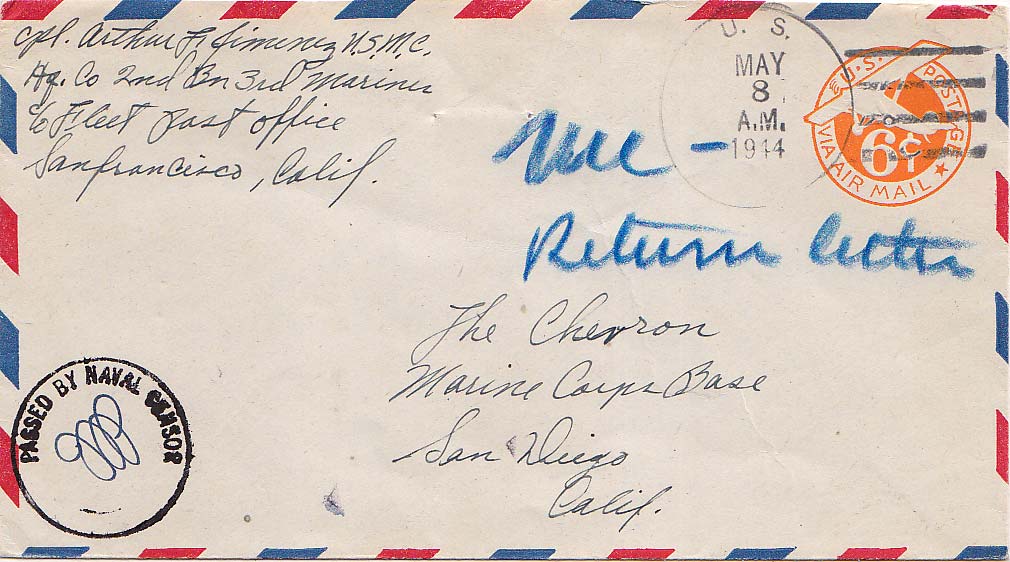 Cpl. Arthur F. Jimenez U.S.M.C.
Hq. Co 2nd Bn. 3rd Marines
c/o Fleet Post Office
Sanfrancisco, Calif.
U. S.
MAY
8
A.M.
1944
U.S. POSTAGE
6¢
VIA AIR MAIL
Return letter
The Chevron
Marine Corps Base
San Diego
Calif.
PASSED BY NAVAL CENSOR